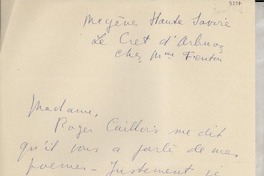 Megève Haute Savoie
Le Cret d'Arbnoz
chez Mme Frontin
Madame,
Roger Caillois me dit
qu'il vous a parlé de mes
poèmes - Justement je